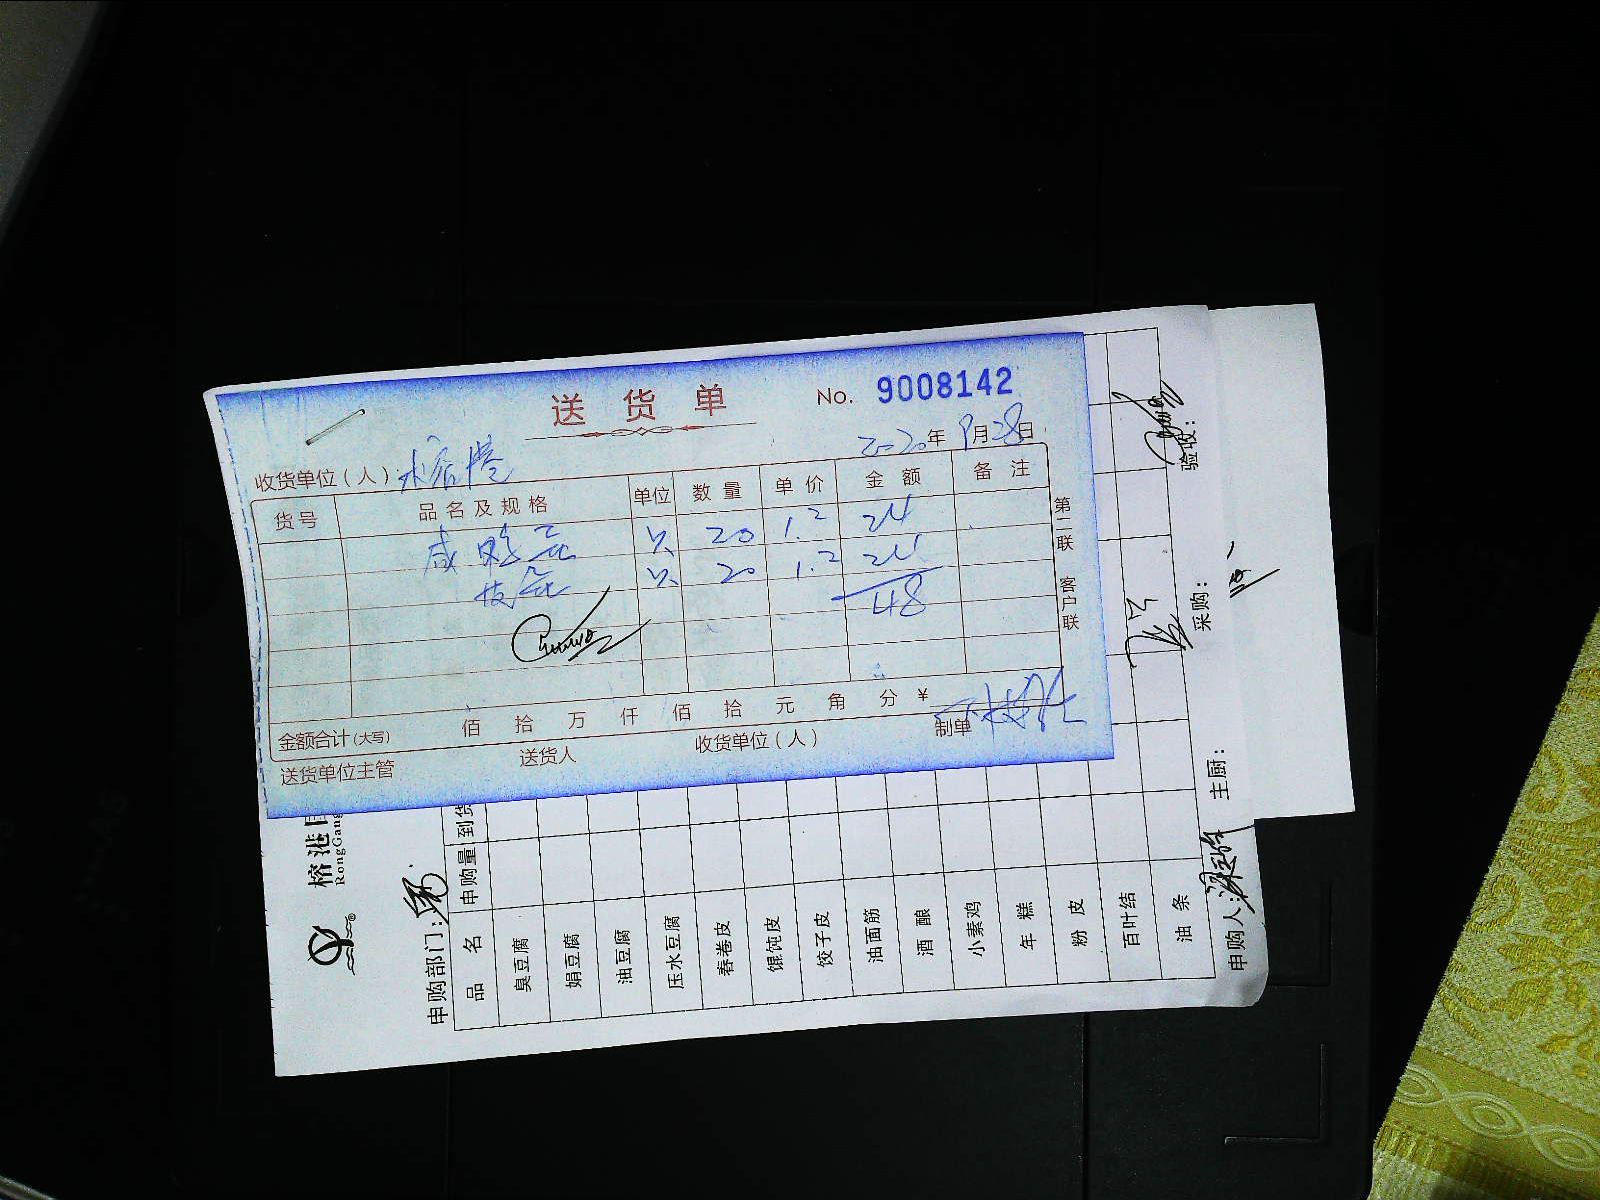 送货单
No. 9008142
2020年9月28日
收货单位(人):榕港
货号 品名及规格 单位 数量 单价 金额 备注
咸鸭蛋 只 20 1.2 24
皮蛋 只 20 1.2 24
48
金额合计(大写) 佰 拾 万 仟 佰 拾 元 角 分 ¥
送货单位主管 送货人 收货单位(人) 制单
第二联 客户联
榕港
RongGang
申购部门:
品名 申购量 到货
臭豆腐
娟豆腐
油豆腐
压水豆腐
春卷皮
馄饨皮
饺子皮
油面筋
酒酿
小素鸡
年糕
粉皮
百叶结
油条
申购人: 主厨: 采购: 验收: